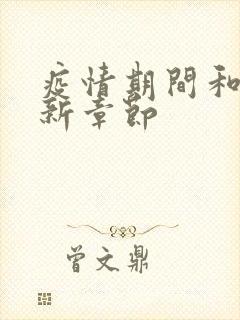 疫情期間和
新章節
曾文鼎